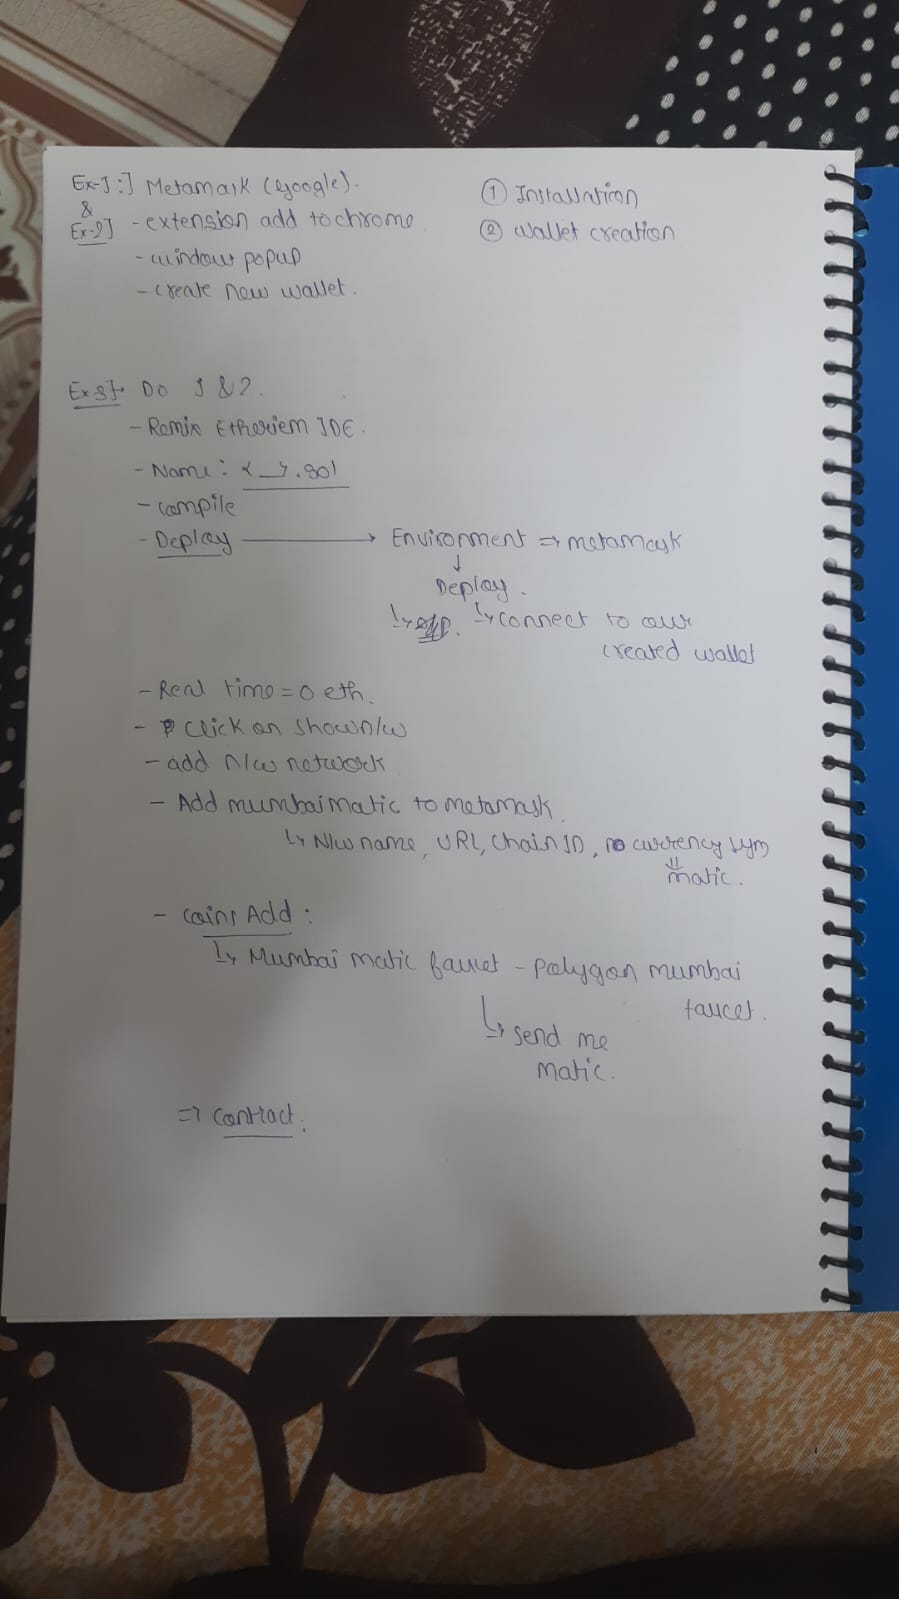 Ex-1:] Metamask (google).
&
Ex-2] - extension add to chrome
- window popup
- create new wallet.
① Installation
② wallet creation
Ex 3]. Do 1 & 2.
- Remix Etheriem IDE.
- Name: < _ >.sol
- compile
- Deploy → Environment ⇒ metamask
↓
Deploy.
↳ connect to our
created wallet
- Real time = 0 eth.
- click on show n/w
- add n/w network
- Add mumbai matic to metamask
↳ N/w name, URL, Chain ID, currency sym
=
matic.
- Coins Add:
↳ Mumbai matic faucet - polygon mumbai
faucet.
↳ send me
matic.
⇒ contract.